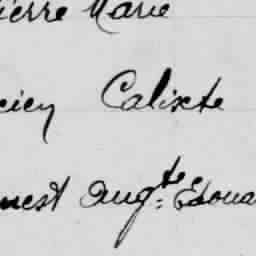 ierre Marie
cien Calixte
nest Aug^te: Edoua